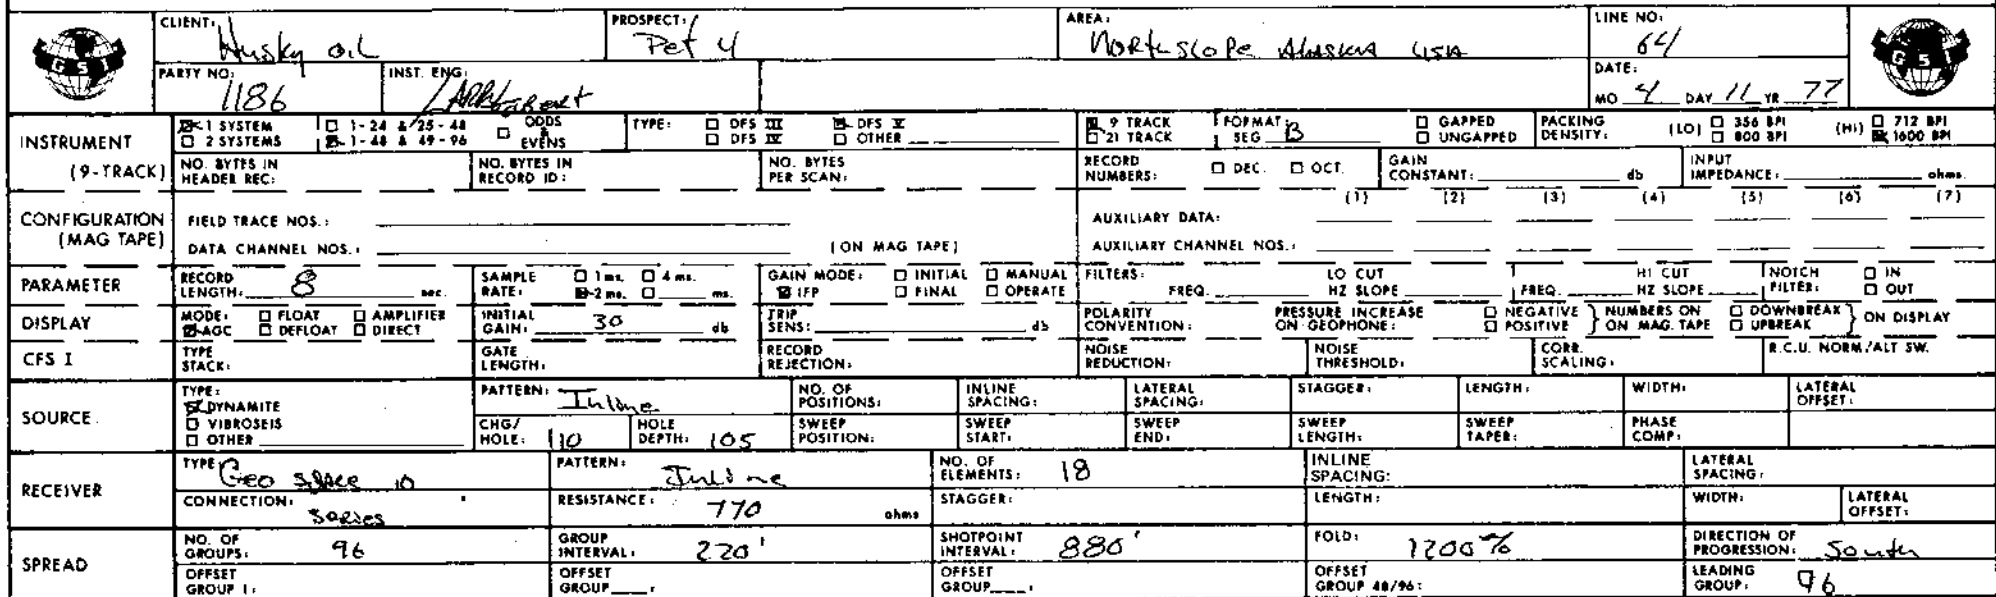 CLIENT: Husky Oil PROSPECT: Pet 4 AREA: North Slope Alaska USA LINE NO: 64
GSI GSI
PARTY NO: 1186 INST. ENG: DATE: MO 4 DAY 11 YR 77
INSTRUMENT (9-TRACK)
1 SYSTEM 1-24 & 25-48 ODDS & EVENS TYPE: DFS III DFS V 9 TRACK FORMAT: SEG B GAPPED PACKING DENSITY: (LO) 356 BPI (HI) 712 BPI
2 SYSTEMS 1-48 & 49-96 DFS IV OTHER 21 TRACK UNGAPPED 800 BPI 1600 BPI
NO. BYTES IN HEADER REC: NO. BYTES IN RECORD ID: NO. BYTES PER SCAN: RECORD NUMBERS: DEC. OCT. GAIN CONSTANT: db INPUT IMPEDANCE: ohms.
CONFIGURATION (MAG TAPE)
FIELD TRACE NOS.: AUXILIARY DATA: (1) (2) (3) (4) (5) (6) (7)
DATA CHANNEL NOS.: (ON MAG TAPE) AUXILIARY CHANNEL NOS.:
PARAMETER RECORD LENGTH: 8 sec. SAMPLE RATE: 1 ms. 4 ms. 2 ms. ms. GAIN MODE: INITIAL MANUAL IFP FINAL OPERATE FILTERS: FREQ. LO CUT HZ SLOPE FREQ. HI CUT HZ SLOPE NOTCH FILTER: IN OUT
DISPLAY MODE: FLOAT AMPLIFIER AGC DEFLOAT DIRECT INITIAL GAIN: 30 db TRIP SENS: db POLARITY CONVENTION: PRESSURE INCREASE ON GEOPHONE: NEGATIVE POSITIVE NUMBERS ON ON MAG. TAPE DOWNBREAK UPBREAK ON DISPLAY
CFS I TYPE STACK: GATE LENGTH: RECORD REJECTION: NOISE REDUCTION: NOISE THRESHOLD: CORR. SCALING: R.C.U. NORM./ALT SW.
SOURCE TYPE: DYNAMITE VIBROSEIS OTHER
PATTERN: Inline NO. OF POSITIONS: INLINE SPACING: LATERAL SPACING: STAGGER: LENGTH: WIDTH: LATERAL OFFSET:
CHG/HOLE: 110 HOLE DEPTH: 105 SWEEP POSITION: SWEEP START: SWEEP END: SWEEP LENGTH: SWEEP TAPER: PHASE COMP:
RECEIVER TYPE: Geo Space 10 PATTERN: Inline NO. OF ELEMENTS: 18 INLINE SPACING: LATERAL SPACING:
CONNECTION: Series RESISTANCE: 770 ohms STAGGER: LENGTH: WIDTH: LATERAL OFFSET:
SPREAD NO. OF GROUPS: 96 GROUP INTERVAL: 220' SHOTPOINT INTERVAL: 880' FOLD: 1200% DIRECTION OF PROGRESSION: South
OFFSET GROUP 1: OFFSET GROUP : OFFSET GROUP : OFFSET GROUP 48/96: LEADING GROUP: 96